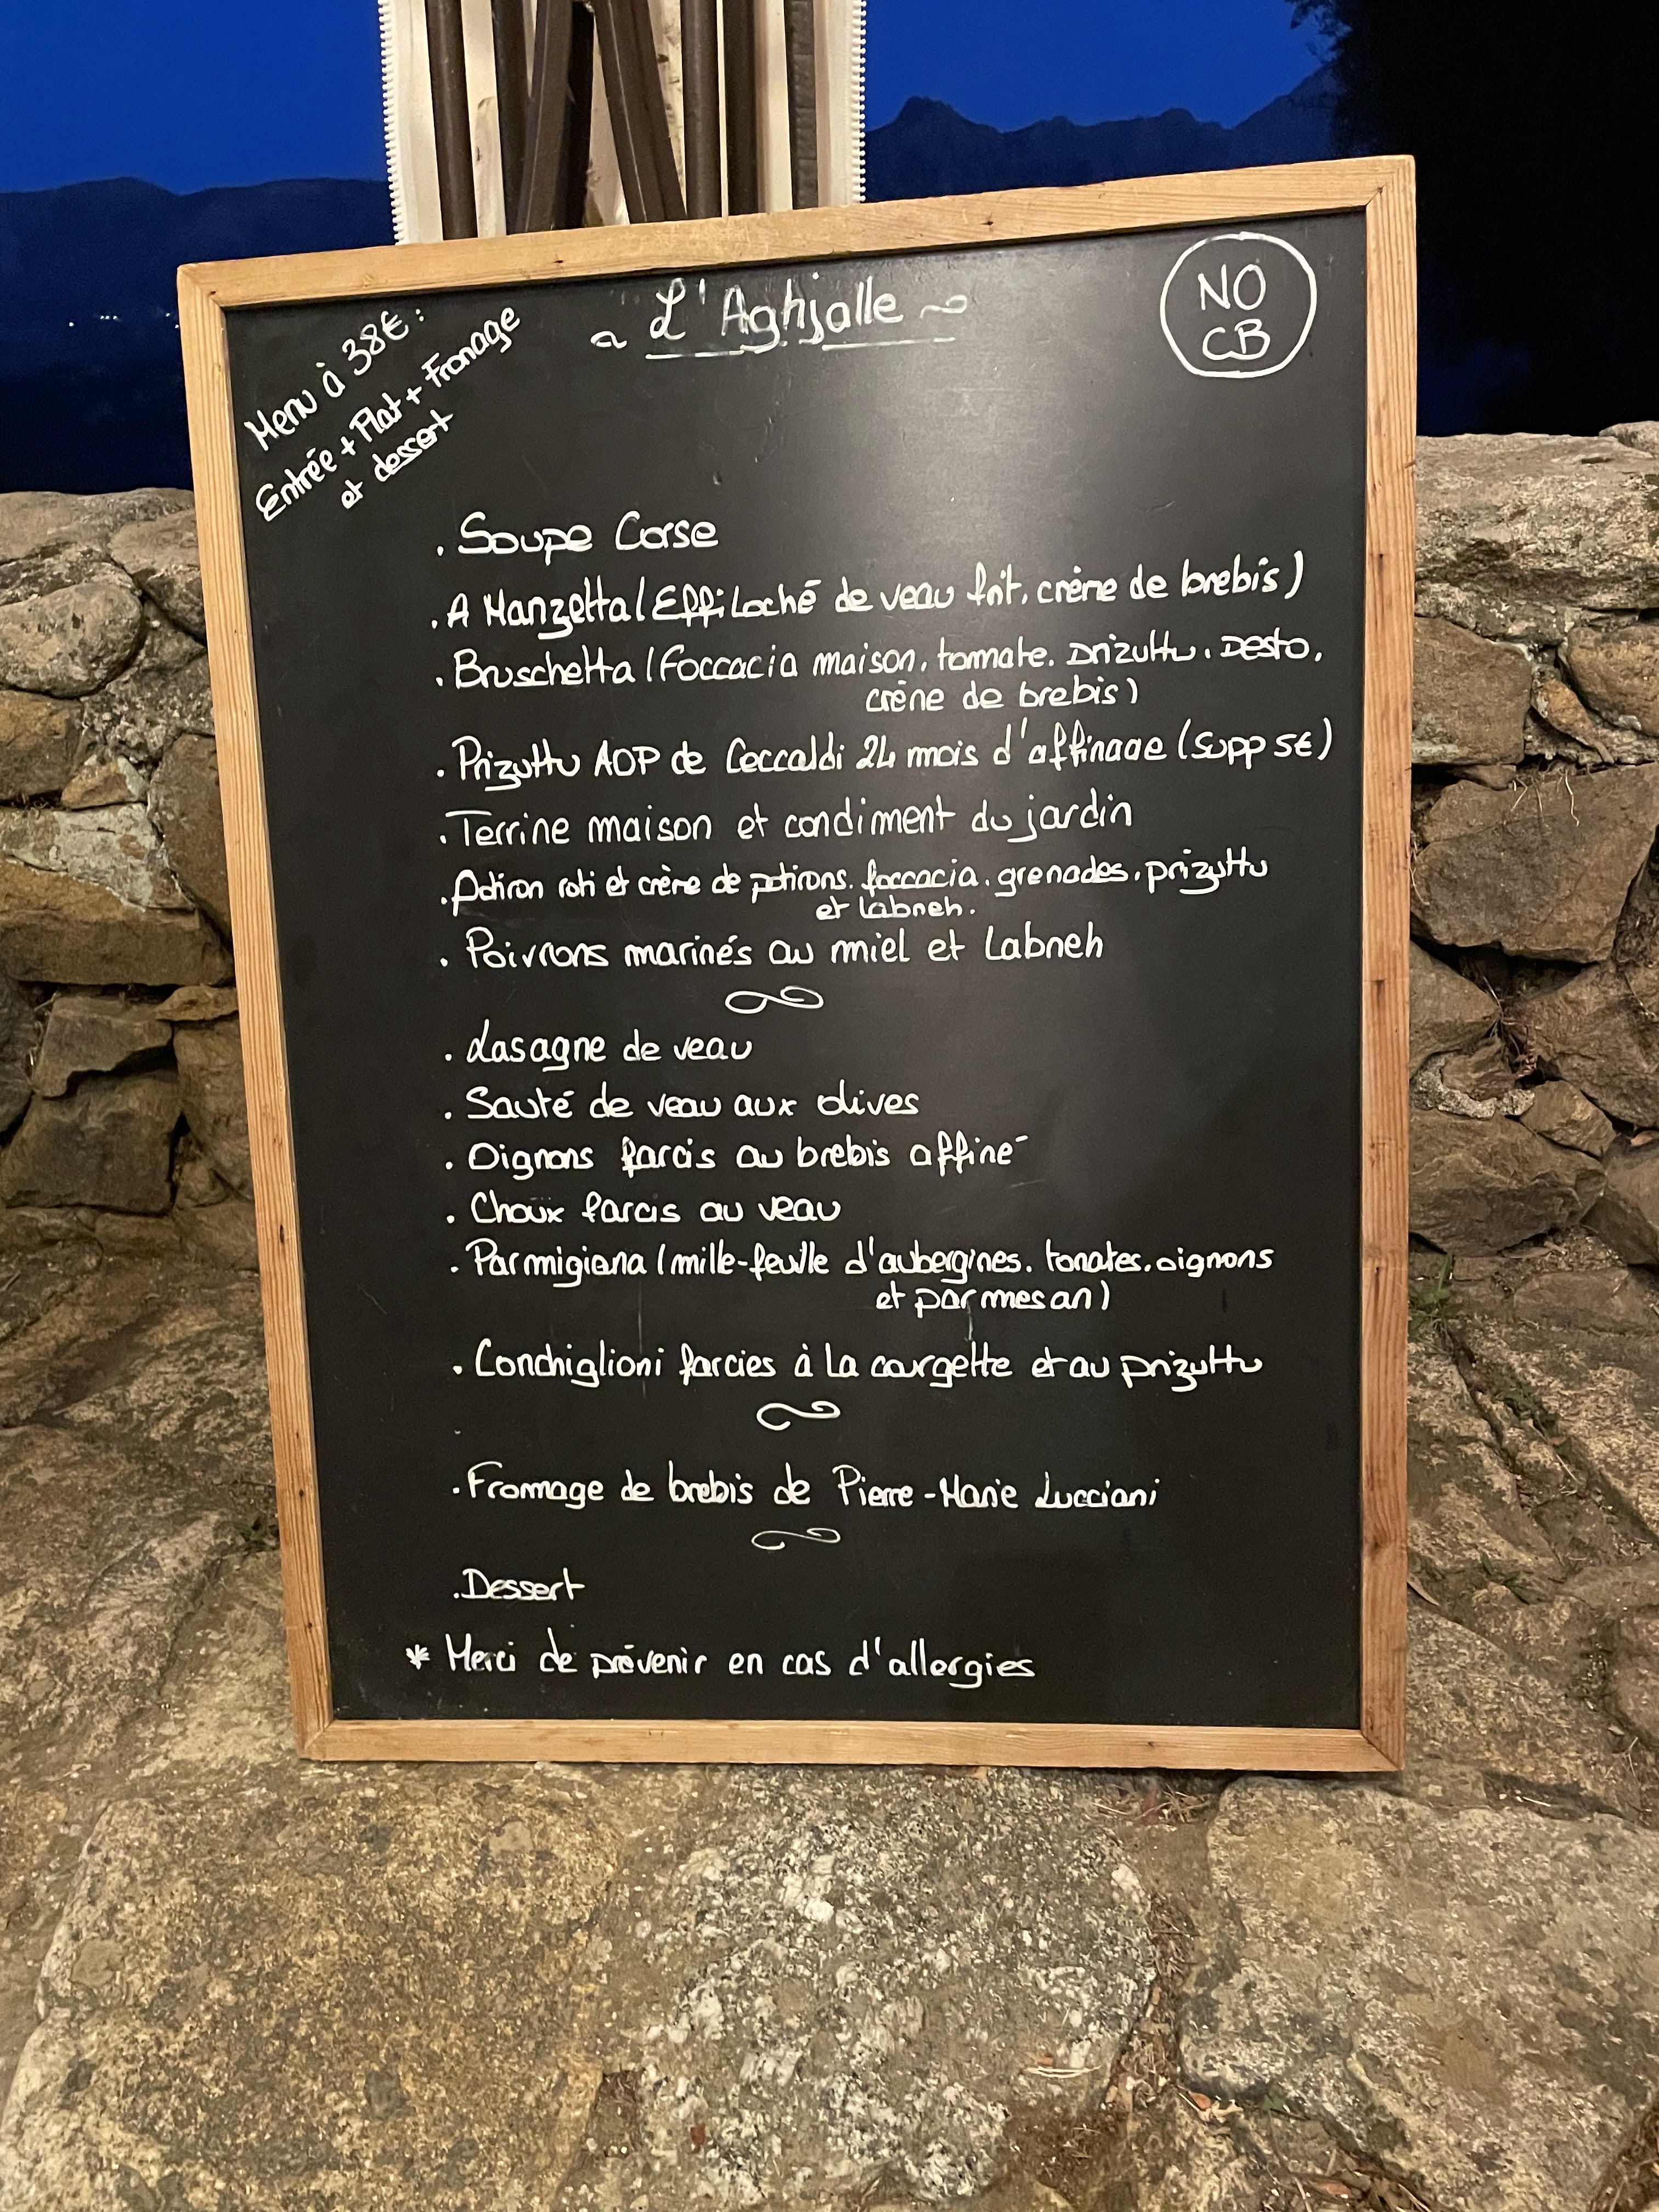 L'Aghjalle
NO
CB
Menu à 38€ :
Entrée + Plat + Fromage
et dessert
. Soupe Corse
. A Manzetta (Effiloché de veau frit, crème de brebis)
. Bruschetta (Foccacia maison, tomate, prizuttu, pesto,
crème de brebis)
. Prizuttu AOP de Ceccaldi 24 mois d'affinage (supp 5€)
. Terrine maison et condiment du jardin
. Potiron roti et crème de potirons, foccacia, grenades, prizuttu
et labneh.
. Poivrons marinés au miel et Labneh
. Lasagne de veau
. Sauté de veau aux olives
. Oignons farcis au brebis affiné
. Choux farcis au veau
. Parmigiana (mille-feuille d'aubergines, tomates, oignons
et parmesan)
. Conchiglioni farcies à la courgette et au prizuttu
. Fromage de brebis de Pierre-Marie Lucciani
. Dessert
* Merci de prévenir en cas d'allergies